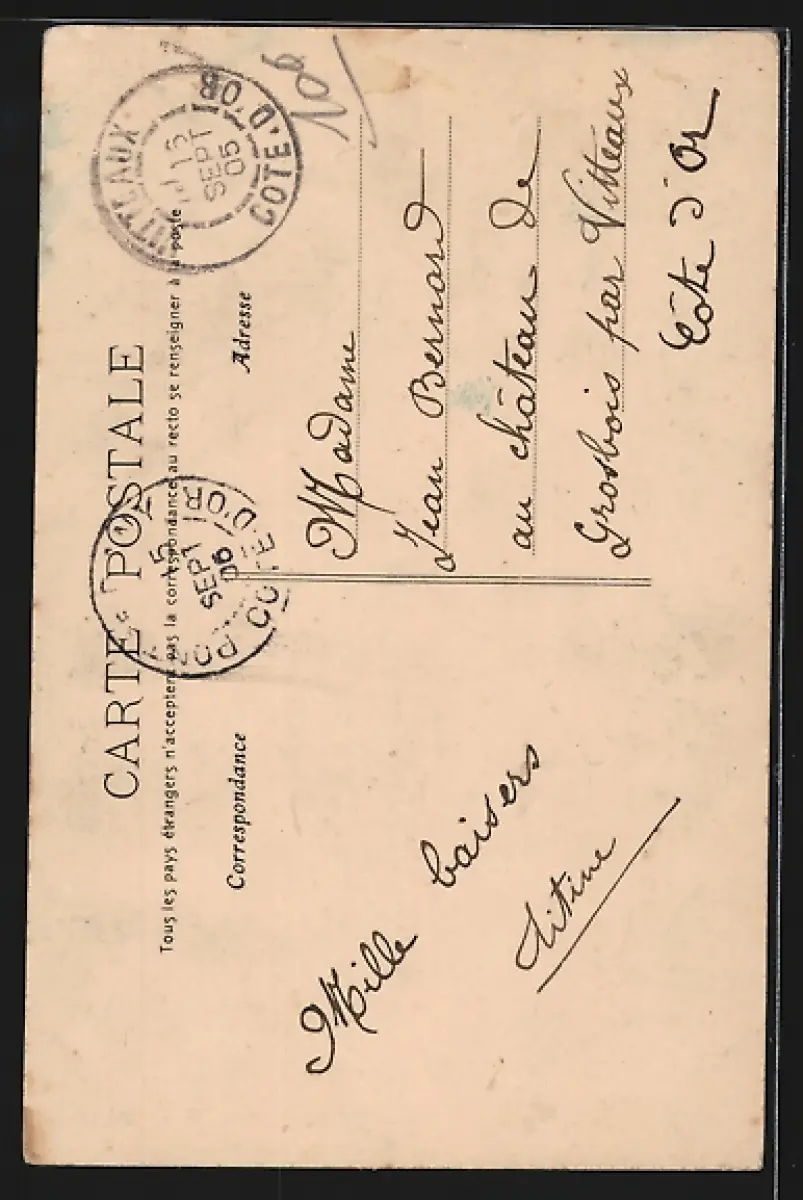 CARTE POSTALE
Tous les pays étrangers n'acceptent pas la correspondance au recto se renseigner à la poste
Correspondance
Adresse
VITTEAUX
15
SEPT
05
COTE-D'OR
15
SEPT
COTE-D'OR
Mille baisers
Titine
Madame
Jean Bernard
au château de
Grosbois par Vitteaux
Côte d'Or